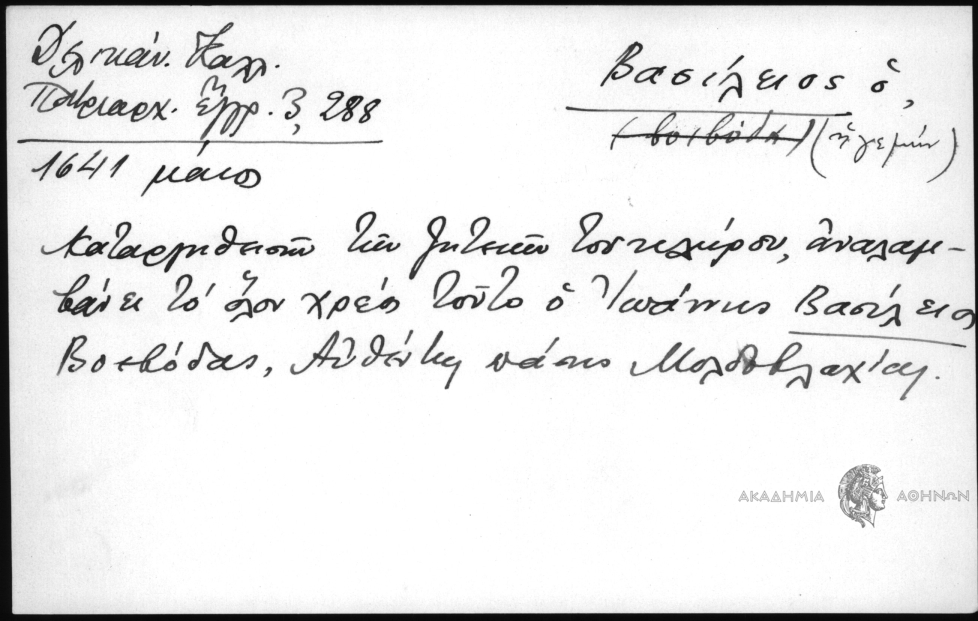 Δελικάν. Καλλ.
Πατριαρχ. ἔγγρ. 3, 288
1641 μάιος
Βασίλειος ὁ,
(βοεβόδα) (ἡγεμών)
Καταργηθεισῶν τῶν ζητειῶν τοῦ κλήρου, ἀναλαμ-
βάνει τό ὅλον χρέος τοῦτο ὁ Ἰωάννης Βασίλειος
Βοεβόδας, Αὐθέντης πάσης Μολδοβλαχίας.
ΑΚΑΔΗΜΙΑ ΑΘΗΝΩΝ